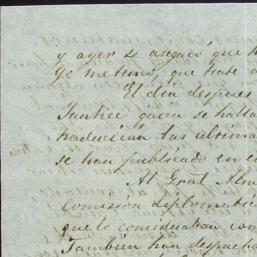 y ayer se aseguró que h
Yo me temo, que trate
El dia despues
Yankee quien se halla
traducieran las ultima
se han publicado en e
Al Gral Alm
Comision diplomatic
que lo consideraban com
Tambien han despacha